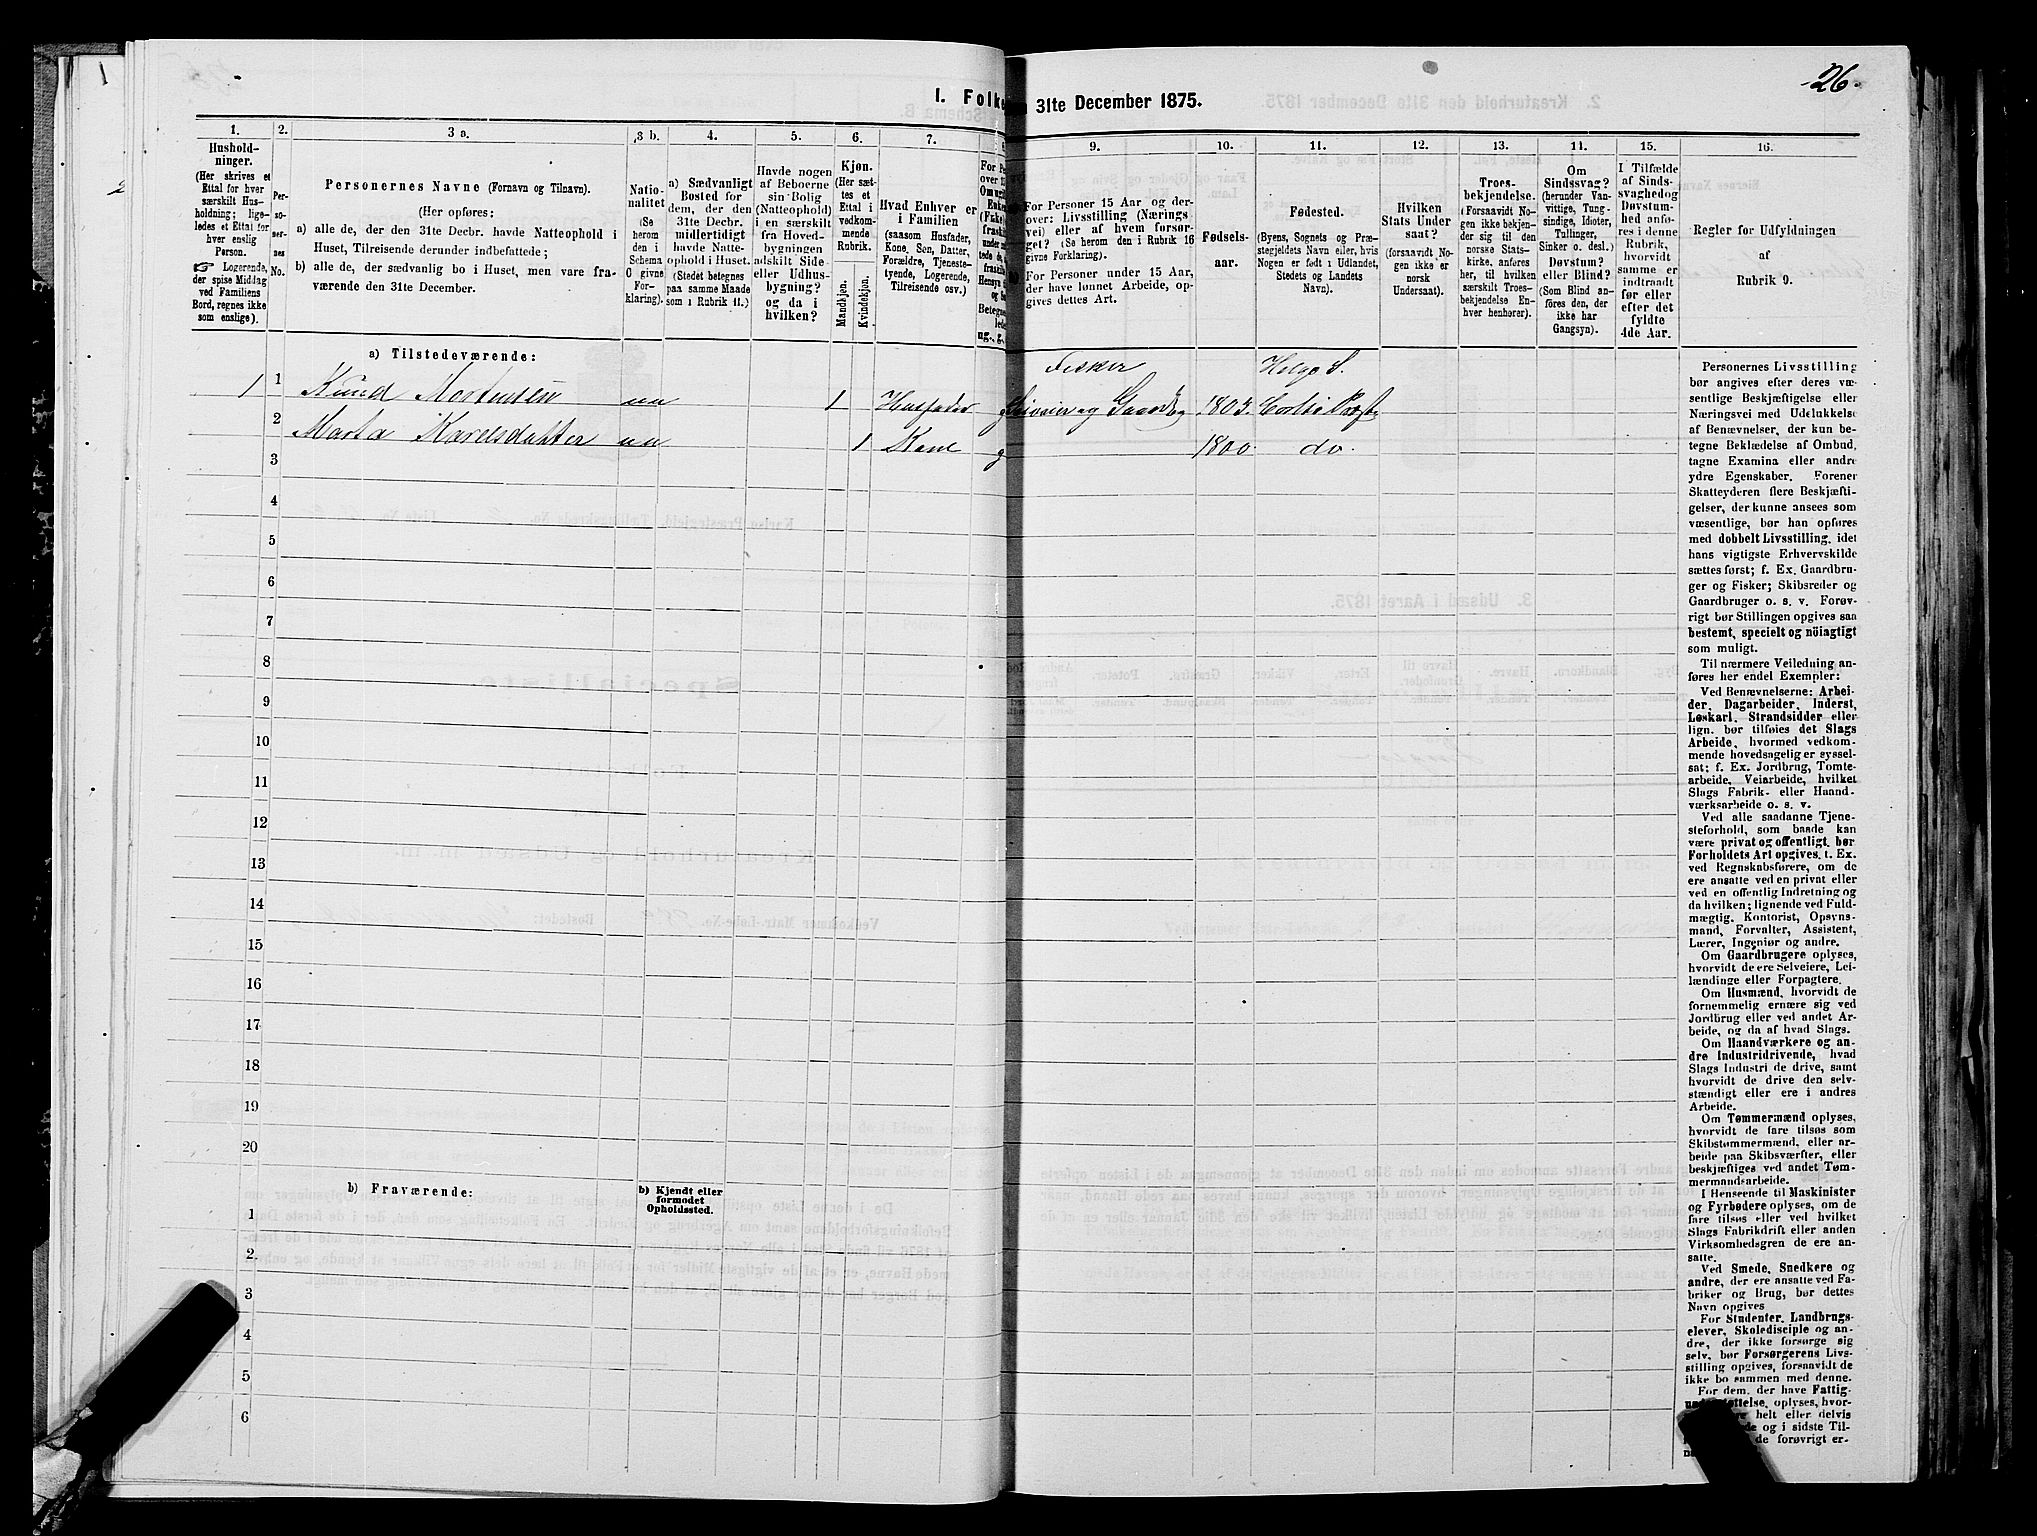 26
I. Folke
31te December 1875.
1.
2.
3 a.
3 b.
4.
5.
6.
7.
9.
10.
11.
12.
13.
11.
15.
16.
Hushold-
ninger.
(Her skrives et
Ettal for hver
særskilt Hus-
holdning; lige-
ledes et Ettal for
hver enslig
Person.
☞ Logerende,
der spise Middag
ved Familiens
Bord, regnes ikke
som enslige).
Per-
so-
ner-
nes
No.
Personernes Navne (Fornavn og Tilnavn).
(Her opføres:
a) alle de, der den 31te Decbr. havde Natteophold i
Huset, Tilreisende derunder indbefattede;
b) alle de, der sædvanlig bo i Huset, men vare fra-
værende den 31te December.
Natio-
nalitet
(Se
herom
den i
Schema
C givne
For-
klaring).
a) Sædvanligt
Bosted for
dem, der den
31te Decbr.
midlertidigt
havde Natte-
ophold i Huset.
(Stedet betegnes
paa samme Maade
som i Rubrik 11.)
Havde nogen
af Beboerne
sin Bolig
(Natteophold)
i en særskilt
fra Hoved-
bygningen
adskilt Side-
eller Udhus-
bygning?
og da i
hvilken?
Kjøn.
(Her sæt-
tes et
Ettal i
vedkom-
mende
Rubrik.
Mandkjøn.
Kvindekjøn.
Hvad Enhver er
i Familien
(saasom Husfader,
Kone, Søn, Datter,
Forældre, Tjeneste-
tyende, Logerende,
Tilreisende osv.)
For Personer 15 Aar og der-
over: Livsstilling (Nærings-
vei) eller af hvem forsør-
get? (Se herom i Rubrik 16
givne Forklaring).
For Personer under 15 Aar,
der have lønnet Arbeide, op-
gives dettes Art.
Fødsels-
aar.
Fødested.
(Byens, Sognets og Præ-
stegjeldets Navn eller, hvis
Nogen er født i Udlandet,
Stedets og Landets
Navn).
Hvilken
Stats Under-
saat?
(forsaavidt No-
gen ikke er
norsk
Undersaat).
Troes-
bekjendelse.
(Forsaavidt No-
gen ikke bekjen-
der sig til den
norske Stats-
kirke, anføres
her, til hvilken
særskilt Troes-
bekjendelse En-
hver henhører).
Om
Sindssvag?
(herunder Van-
vittige, Tung-
sindige, Idioter,
Tullinger,
Sinker o. desl.)
Døvstum?
eller Blind?
(Som Blind an-
føres den, der
ikke har
Gangsyn).
I Tilfælde
af Sinds-
svaghed og
Døvstum-
hed anfø-
res i denne
Rubrik,
hvorvidt
samme er
indtraadt
før eller
efter det
fyldte
4de Aar.
Regler for Udfyldningen
af
Rubrik 9.
a) Tilstedeværende:
Fisker Helgø S.
1 1 Knud Mortensen nn 1 Husfader g Gaardbr 1803.
2 Marta Karelsdatter nn 1 Kone g 1800. do.
3
4
5
6
7
8
9
10
11
12
13
14
15
16
17
18
19
20
b) Fraværende:
b) Kjendt eller
formodet
Opholdssted.
1
2
3
4
5
6
Personernes Livsstilling
bør angives efter deres væ-
sentlige Beskjæftigelse eller
Næringsvei med Udelukkelse
af Benævnelser, der kun be-
tegne Beklædelse af Ombud,
tagne Examina eller andre
ydre Egenskaber. Forener
Skatteyderen flere Beskjæfti-
gelser, der kunne ansees som
væsentlige, bør han opføres
med dobbelt Livsstilling, idet
hans vigtigste Erhvervskilde
sættes først; f. Ex. Gaardbru-
ger og Fisker; Skibsreder og
Gaardbruger o. s. v. Forøv-
rigt bør Stillingen opgives saa
bestemt, specielt og nöiagtigt
som muligt.
Til nærmere Veiledning an-
føres her endel Exempler:
Ved Benævnelserne: Arbei-
der, Dagarbeider, Inderst,
Løskarl, Strandsidder eller
lign. bør tilføies det Slags
Arbeide, hvormed vedkom-
mende hovedsagelig er syssel-
sat; f. Ex. Jordbrug, Tomte-
arbeide, Veiarbeide, hvilket
Slags Fabrik- eller Haand-
værksarbeide o. s. v.
Ved alle saadanne Tjene-
steforhold, som baade kan
være privat og offentligt, bør
Forholdets Art opgives, f. Ex.
ved Regnskabsførere, om de
ere ansatte ved en privat eller
ved en offentlig Indretning og
da hvilken; lignende ved Fuld-
mægtig, Kontorist, Opsyns-
mand, Forvalter, Assistent,
Lærer, Ingeniør og andre.
Om Gaardbrugere oplyses,
hvorvidt de ere Selveiere, Lei-
lændinge eller Forpagtere.
Om Husmænd, hvorvidt de
fornemmelig ernære sig ved
Jordbrug eller ved andet Ar-
beide, og da af hvad Slags.
Om Haandværkere og an-
dre Industridrivende, hvad
Slags Industri de drive, samt
hvorvidt de drive den selv-
stændigt eller ere i andres
Arbeide.
Om Tømmermænd oplyses,
hvorvidt de fare tilsøs som
Skibstømmermænd, eller ar-
beide paa Skibsværfter, eller
beskjæftiges ved andet Tøm-
mermandsarbeide.
I Henseende til Maskinister
og Fyrbødere oplyses, om de
fare tilsøs eller ved hvilket
Slags Fabrikdrift eller anden
Virksomhedsgren de ere an-
satte.
Ved Smede, Snedkere og
andre, der ere ansatte ved Fa-
briker og Brug, bør dettes
Navn opgives
For Studenter, Landbrugs-
elever, Skoledisciple og an-
dre, der ikke forsørge sig
selv, bør Forsørgerens Livs-
stilling opgives, forsaavidt de
ikke bo sammen med denne.
For dem, der have Fattig-
understøttelse, oplyses, hvor-
helt eller delvis
og i sidste Til-
de forøvrigt er-